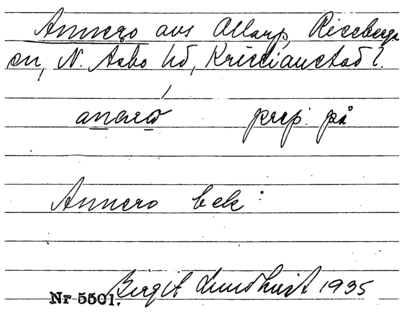 Annero avs Allarp, Riseberga
sn, N. Åsbo hd, Kristianstad l.
anərɷ prep. på
Annero bek:
Nr 5501. Birgit Lundkvist 1935